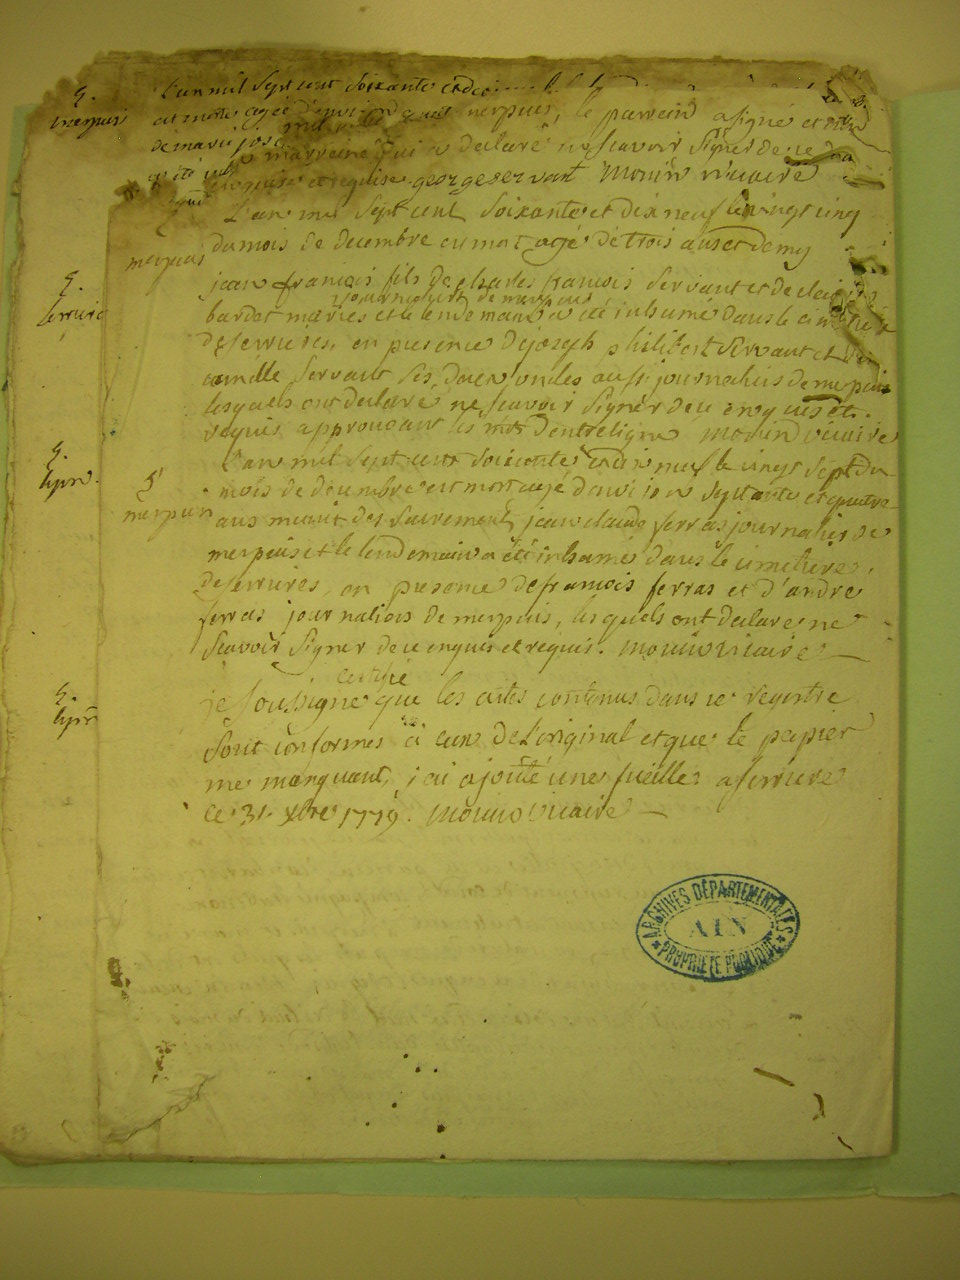 L'an mil Sept cent Soixante et
est morte agée d'environ merpuis, le parrein a signé et non
de marie jose
la marreine qui a declaré ne scavoir signer de ce
enquise et requise. george servant Monin vicaire
S.
merpuis
L'an mil Sept cent Soixante et dix neuf le vingt cinq
du mois de decembre est mort agé de trois ans et demy
S.
merpuis
jean françois fils de charles françois Servant et de
journaliers de merpuis
bardet mariés et le lendemain a été inhumé dans le cimetiere
S.
serriere
de serrieres, en presence de joseph philibert Servant et
camille Servant ses deux oncles aussi journaliers de merpuis
lesquels ont declaré ne scavoir signer de ce enquis et
requis approuvant les mots d'entreligne Monin vicaire
L'an mil Sept cent Soixante et dix neuf le vingt sept du
S.
S.
merpuis
mois de decembre est mort agé d'environ septante et quatre
ans muni des sacrements jean claude ferras journalier de
merpuis et le lendemain a été inhumé dans le cimetiere
de serrieres, en presence de françois ferras et d'andré
ferras journaliers de merpuis, lesquels ont declaré ne
scavoir signer de ce enquis et requis. monin vicaire
certifié
S.
je soussigné que les actes contenus dans ce registre
sont conformes à ceux de l'original et que le papier
me manquant, j'ai ajouté une fueille a serriere
ce 31. xbre 1779. Monin vicaire
ARCHIVES DÉPARTEMENTALES
AIN
PROPRIÉTÉ PUBLIQUE